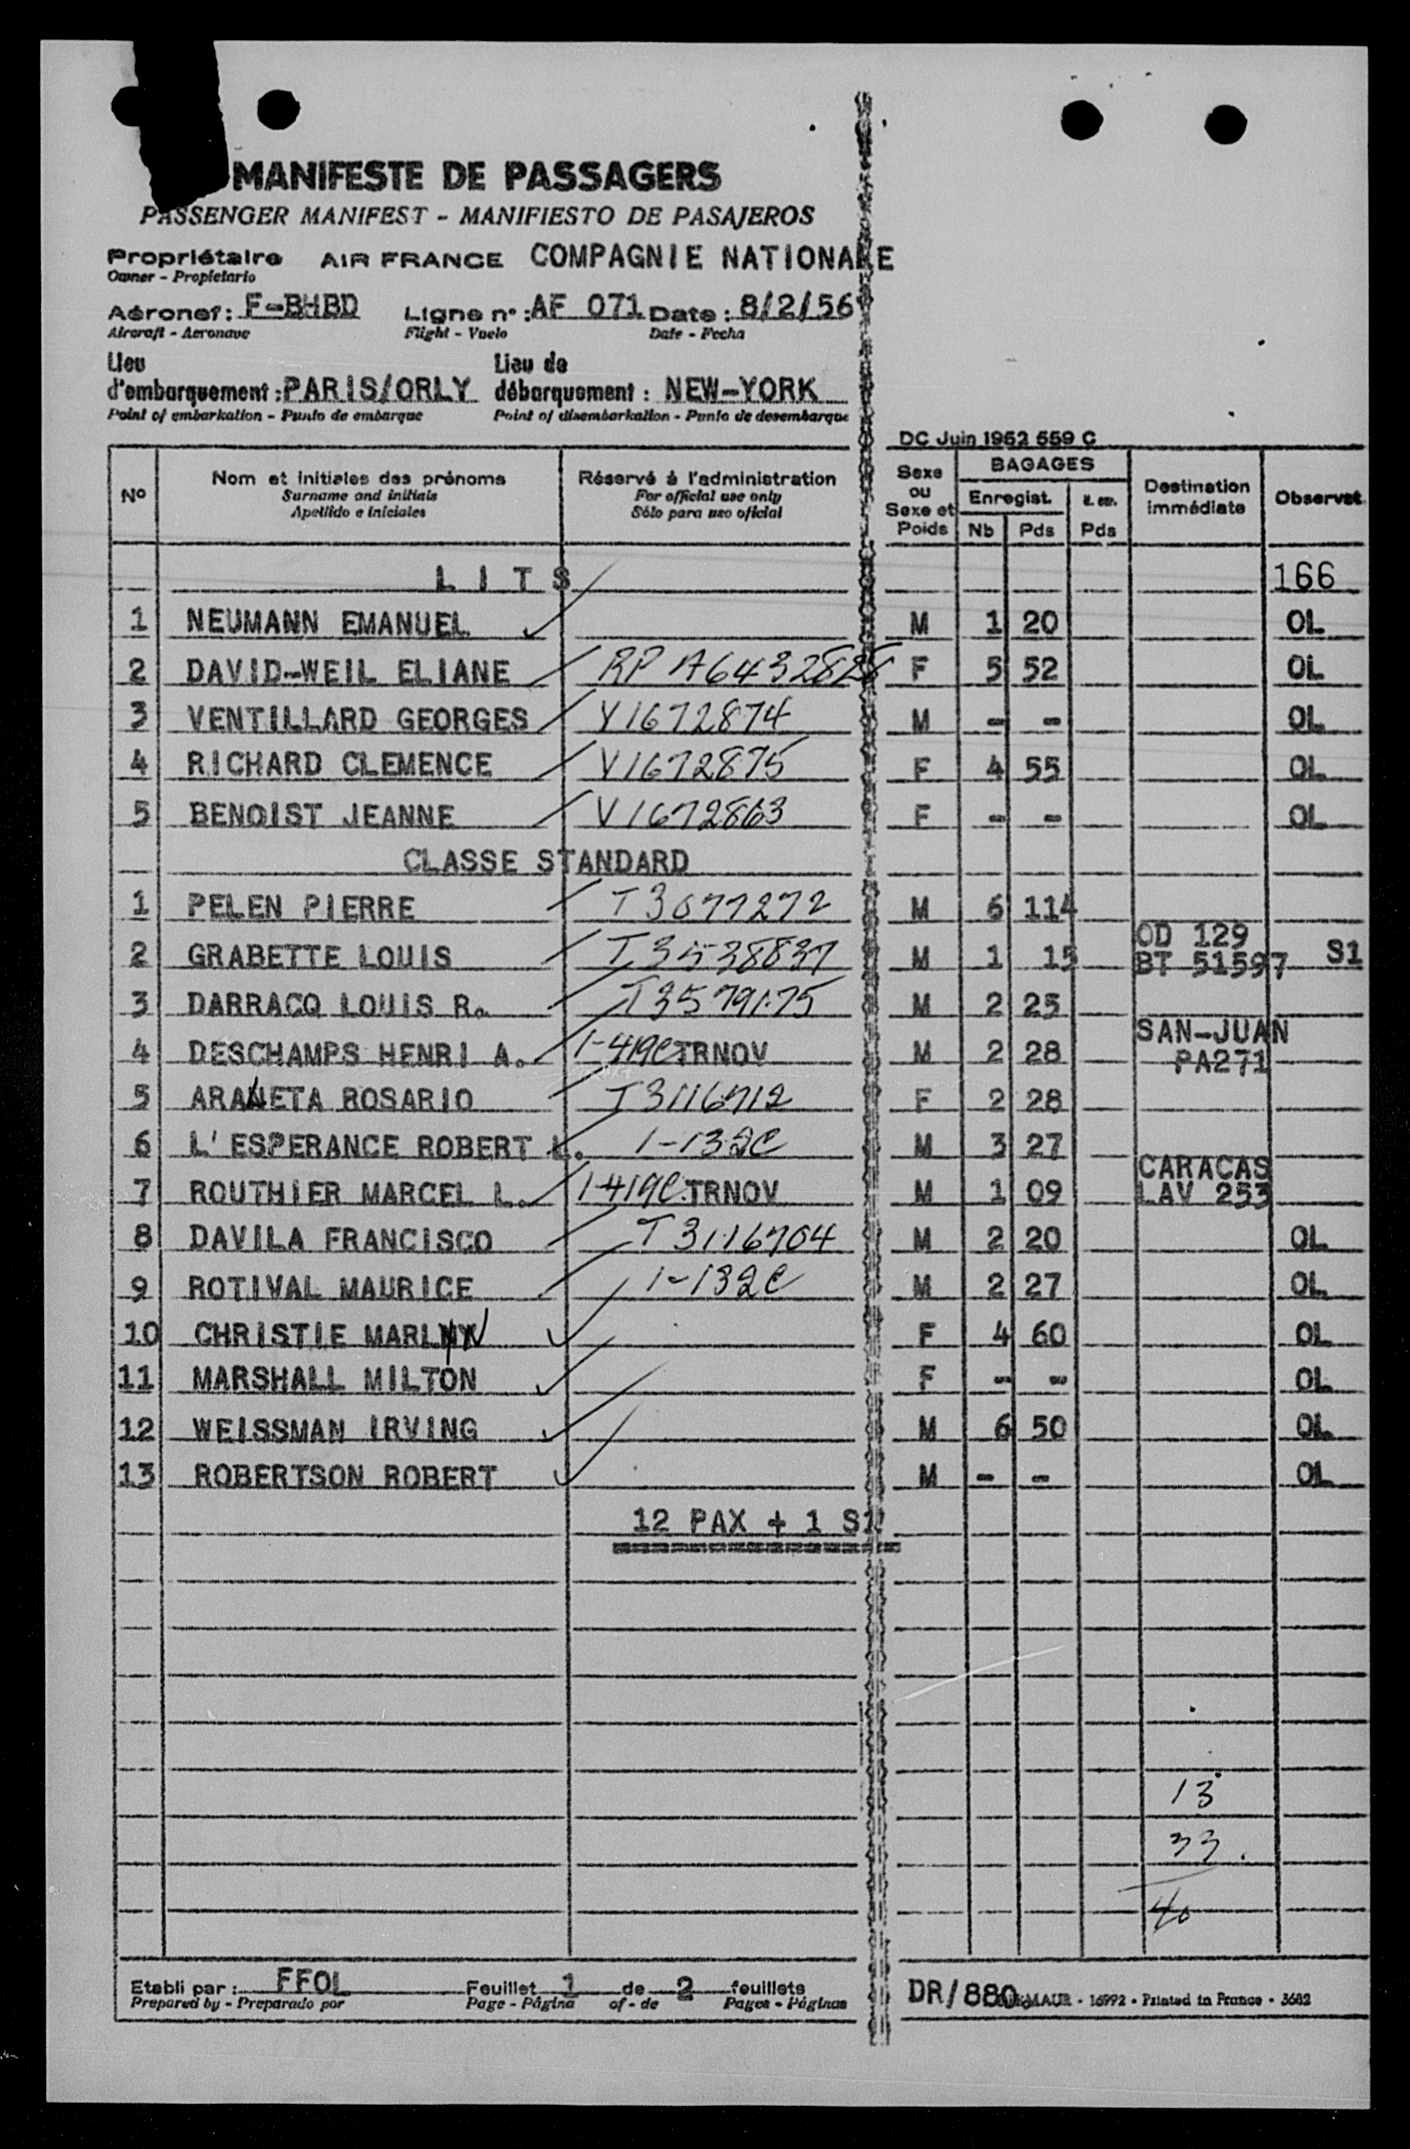 MANIFESTE DE PASSAGERS
PASSENGER MANIFEST - MANIFIESTO DE PASAJEROS
Propriétaire AIR FRANCE COMPAGNIE NATIONALE
Owner - Propietario
Aéronef: F-BHBD Ligne n°: AF 071 Date: 8/2/56
Aircraft - Aeronave Flight - Vuelo Date - Fecha
Lieu Lieu de
d'embarquement: PARIS/ORLY débarquement: NEW-YORK
Point of embarkation - Punto de embarque Point of disembarkation - Punto de desembarque
DC Juin 1952 559 C
N° Nom et initiales des prénoms Réservé à l'administration Sexe ou Sexe et Poids BAGAGES Destination immédiate Observat.
Surname and initials For official use only Enregist.
Apellido e iniciales Sólo para uso oficial Nb Pds Pds
L I T S 166
1 NEUMANN EMANUEL M 1 20 OL
2 DAVID-WEIL ELIANE RP A6432828 F 5 52 OL
3 VENTILLARD GEORGES V1672874 M - - OL
4 RICHARD CLEMENCE V1672875 F 4 55 OL
5 BENOIST JEANNE V1672863 F - - OL
CLASSE STANDARD
1 PELEN PIERRE T3677272 M 6 114
OD 129
2 GRABETTE LOUIS T3538837 M 1 15 BT 51597 S1
3 DARRACQ LOUIS R. T3579175 M 2 25
SAN-JUAN
4 DESCHAMPS HENRI A. 1-419C TRNOV M 2 28 PA271
5 ARANETA ROSARIO T3116712 F 2 28
6 L'ESPERANCE ROBERT L. 1-132C M 3 27
CARACAS
7 ROUTHIER MARCEL L. 1-419C TRNOV M 1 09 LAV 253
8 DAVILA FRANCISCO T3116704 M 2 20 OL
9 ROTIVAL MAURICE 1-132C M 2 27 OL
10 CHRISTIE MARLYN F 4 60 OL
11 MARSHALL MILTON F - - OL
12 WEISSMAN IRVING M 6 50 OL
13 ROBERTSON ROBERT M - - OL
12 PAX + 1 S1
13
33
40
Etabli par: FFOL Feuillet 1 de 2 feuillets
Prepared by - Preparado por Page - Página of - de Pages - Páginas
DR/880 - 16992 - Printed in France - 3682